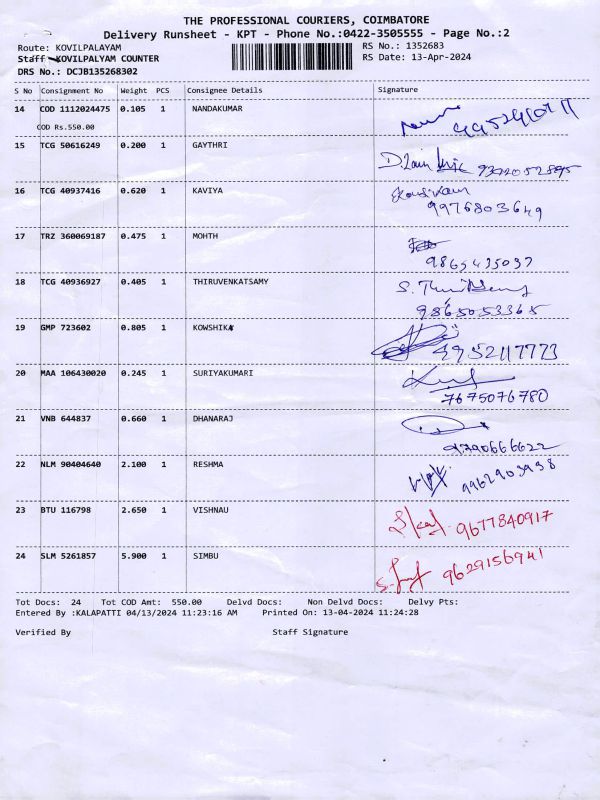 THE PROFESSIONAL COURIERS, COIMBATORE
Delivery Runsheet - KPT - Phone No.:0422-3505555 - Page No.:2
Route: KOVILPALAYAM
RS No.: 1352683
Staff KOVILPALYAM COUNTER
RS Date: 13-Apr-2024
DRS No.: DCJB135268302
S No Consignment No Weight PCS Consignee Details Signature
14 COD 1112024475 0.105 1 NANDAKUMAR
COD Rs.550.00
15 TCG 50616249 0.200 1 GAYTHRI
16 TCG 40937416 0.620 1 KAVIYA
9976803649
17 TRZ 360069187 0.475 1 MOHTH
9865435037
18 TCG 40936927 0.405 1 THIRUVENKATSAMY
9865053365
19 GMP 723602 0.805 1 KOWSHIKA
9952117773
20 MAA 106430020 0.245 1 SURIYAKUMARI
7675076780
21 VNB 644837 0.660 1 DHANARAJ
22 NLM 90404640 2.100 1 RESHMA
9962903938
23 BTU 116798 2.650 1 VISHNAU
9677840917
24 SLM 5261857 5.900 1 SIMBU
9629156941
Tot Docs: 24 Tot COD Amt: 550.00 Delvd Docs: Non Delvd Docs: Delvy Pts:
Entered By :KALAPATTI 04/13/2024 11:23:16 AM Printed On: 13-04-2024 11:24:28
Verified By Staff Signature